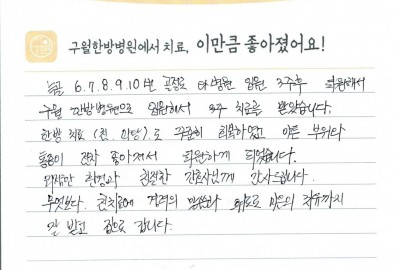 구월한방병원에서 치료, 이만큼 좋아졌어요!
늑골 6.7.8.9.10번 골절로 타병원 입원 3주후 퇴원해서
구월 한방병원으로 입원해서 3주 치료를 받았습니다.
한방 치료 (침. 이당)로 꾸준히 회복하였고 아픈 부위와
통증이 전차 좋아져서 퇴원하게 되었습니다.
쾌적한 환경과 친절한 간호사님께 감사드립니다.
무엇보다. 침치료에 격려의 말씀과 위로로 마음의 치유까지
잘 받고 집으로 갑니다.